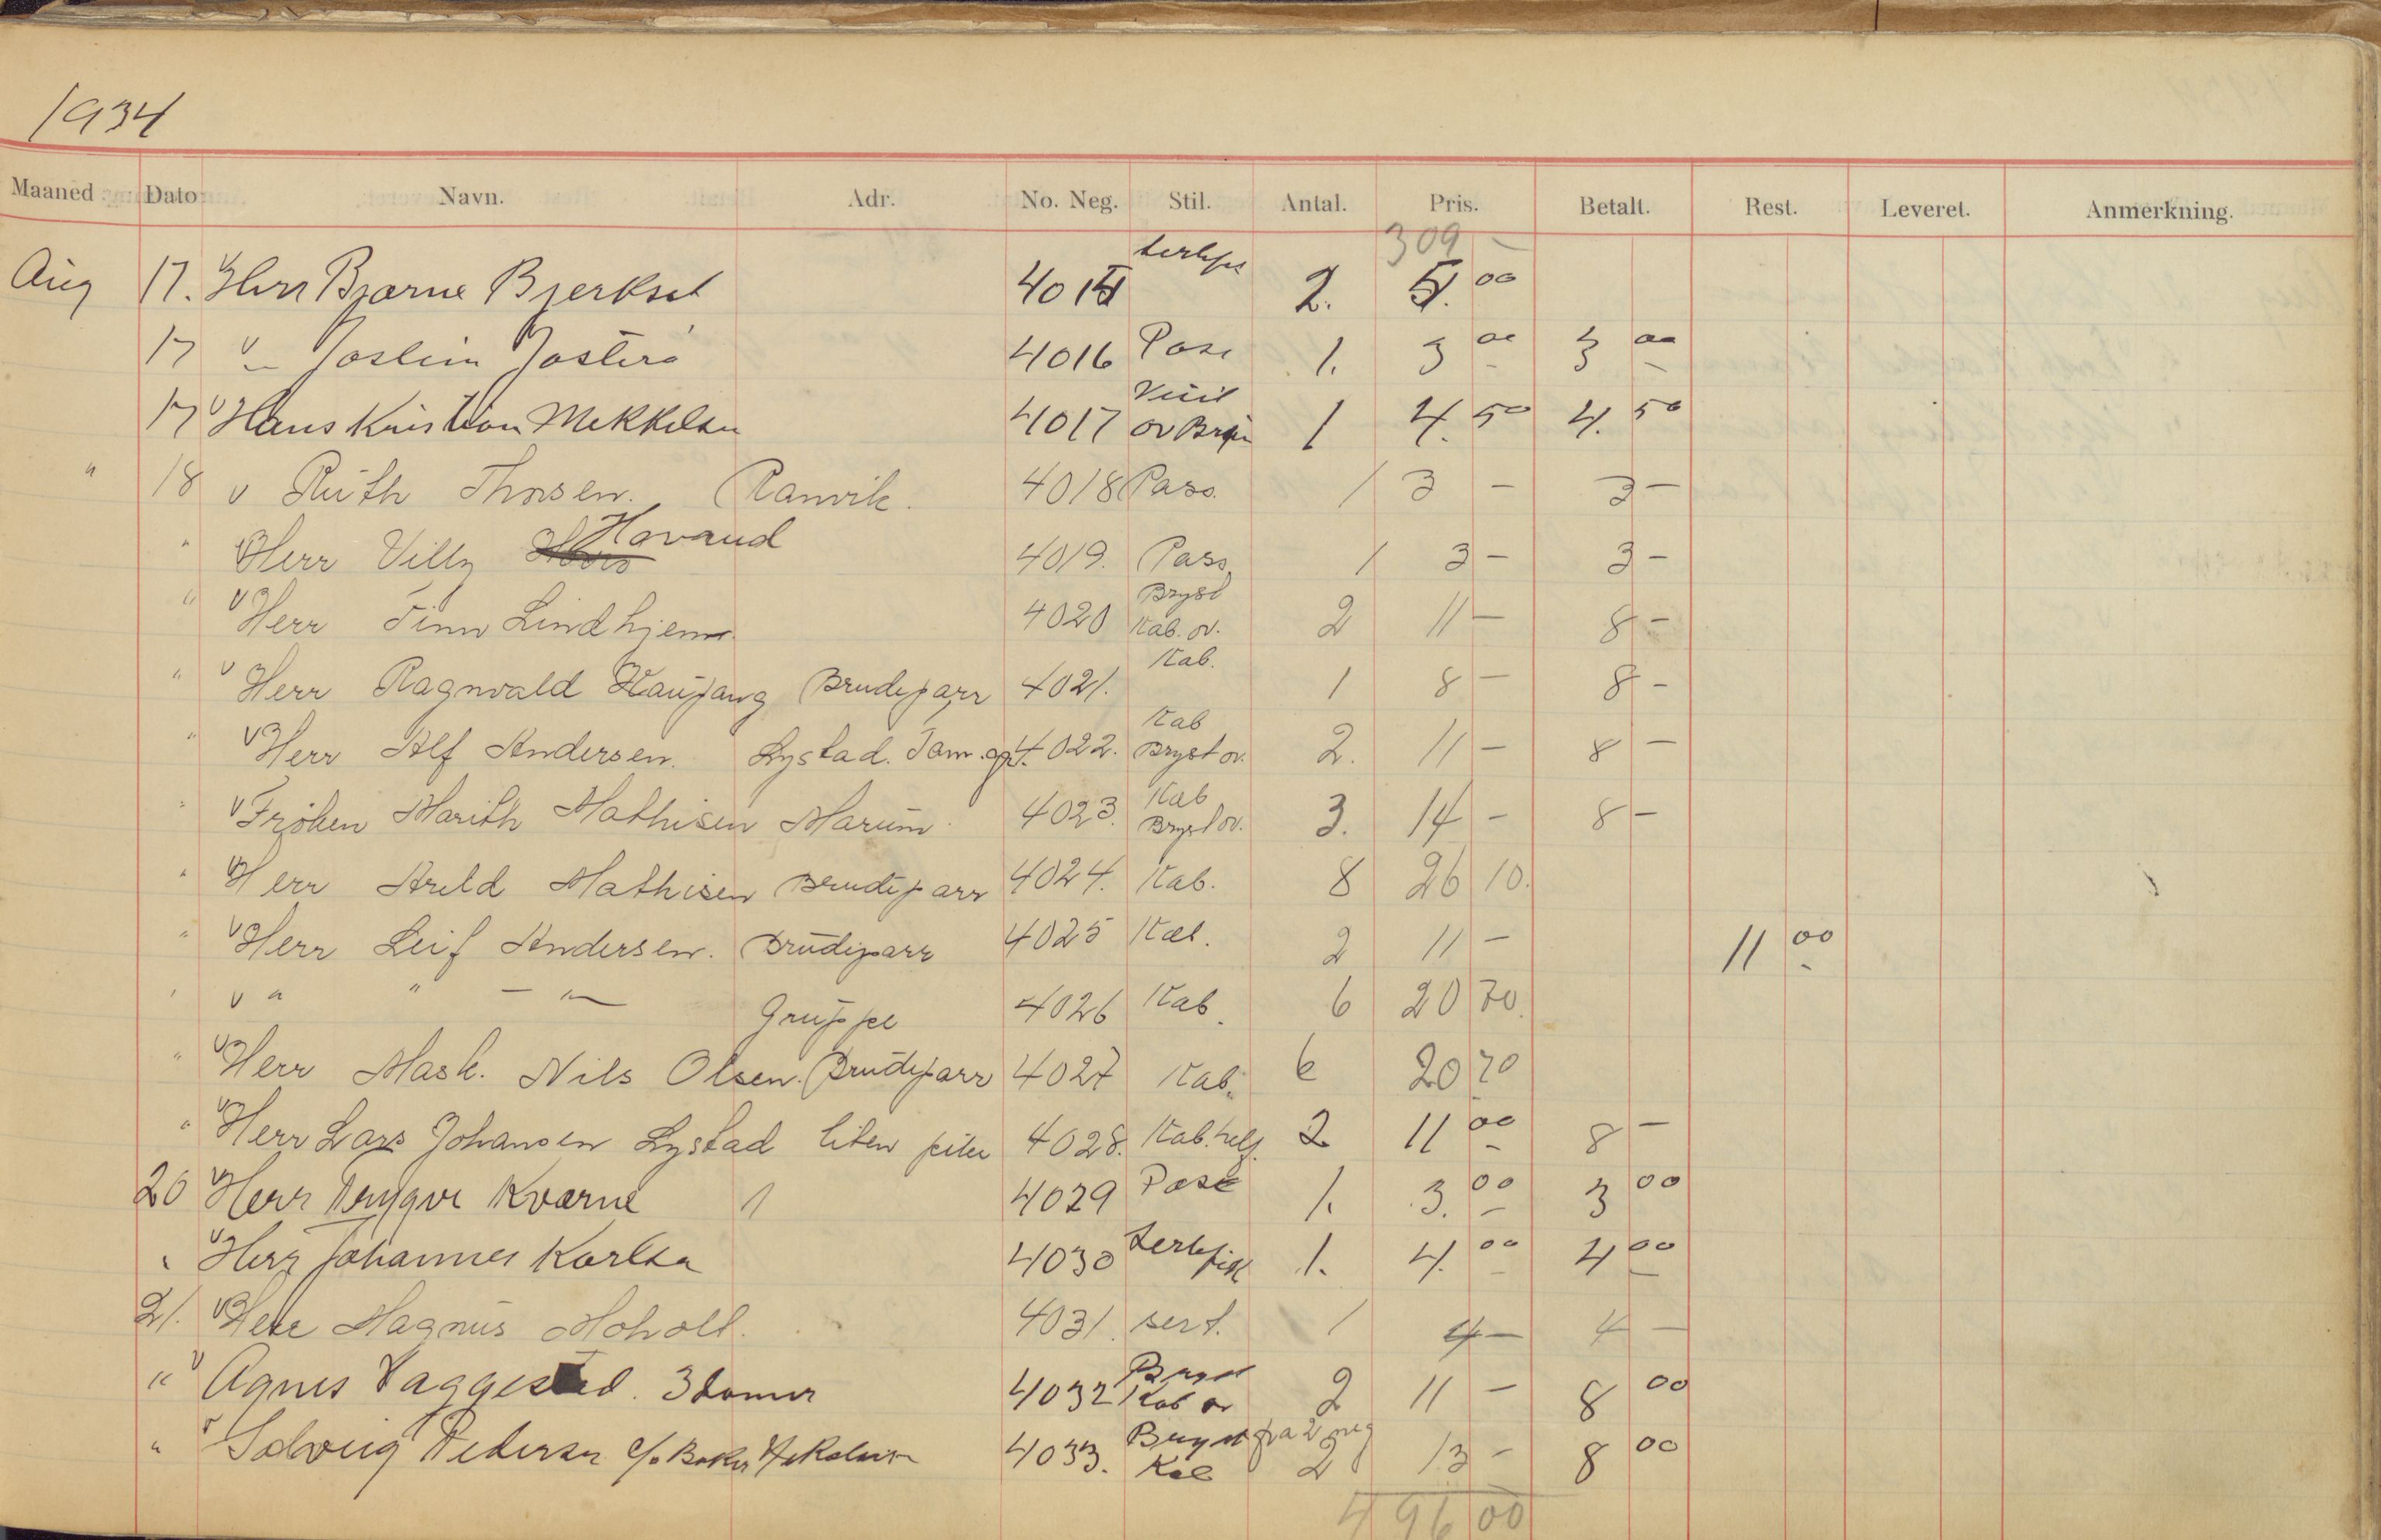 1934
Maaned Dato Navn. Adr. No. Neg. Stil. Antal. Pris. Betalt. Rest. Leveret. Anmerkning.
309 -
Aug 17. Herr Bjarne Bjerkset 4015 2. 5.00
17 " Jostein 4016 Pass 1. 3 00 3 00
17 v Hans Kristian Mikkelsen 4017 Visit ov Bryst 1 4. 50 4. 50
" 18 v Ruth Thorsen. Ranvik. 4018 Pass. 1 3 - 3 -
" v Herr Villy Havand 4019. Pass. 1 3 - 3 -
" v Herr Finn Lindhjem 4020 Bryst Kab. ov. 2 11 - 8 -
" v Herr Ragnvald Kaupang Brudeparr 4021. Kab. 1 8 - 8 -
" v Herr Alf Andersen. Lystad. Fam. gr. 4022. Kab Bryst ov. 2. 11 - 8 -
" v Frøken Marith Mathisen Marum. 4023. Kab Bryst ov. 3. 14 - 8 -
" v Herr Areld Mathisen Brudeparr 4024. Kab. 8 26 10.
" v Herr Leif Andersen. Brudeparr 4025 Kab. 2 11 - 11 00
" v " " - " - Gruppe 4026 Kab. 6 20 70.
" v Herr Mask. Nils Olsen. Brudeparr 4027 Kab. 6 20 70
" v Herr Lars Johansen Lystad liten 4028. Kab. hel. 2 11 00 8 -
20 v Herr Trygve Kværne 1 4029 Pass 1. 3. 00 3 00
" v Herr Johannes Karlsen 4030 Sertifik 1. 4. 00 4 00
21. v Herr Magnus Moholt. 4031. sert. 1 4 - 4 -
" v Agnes Vaggestad. 3 damer 4032 Bryst Kab ov 2 11 - 8 00
" v Solveig Pedersen c/o Baker 4033. Bryst Kab fra 2 neg 2 13 - 8 00
496 00